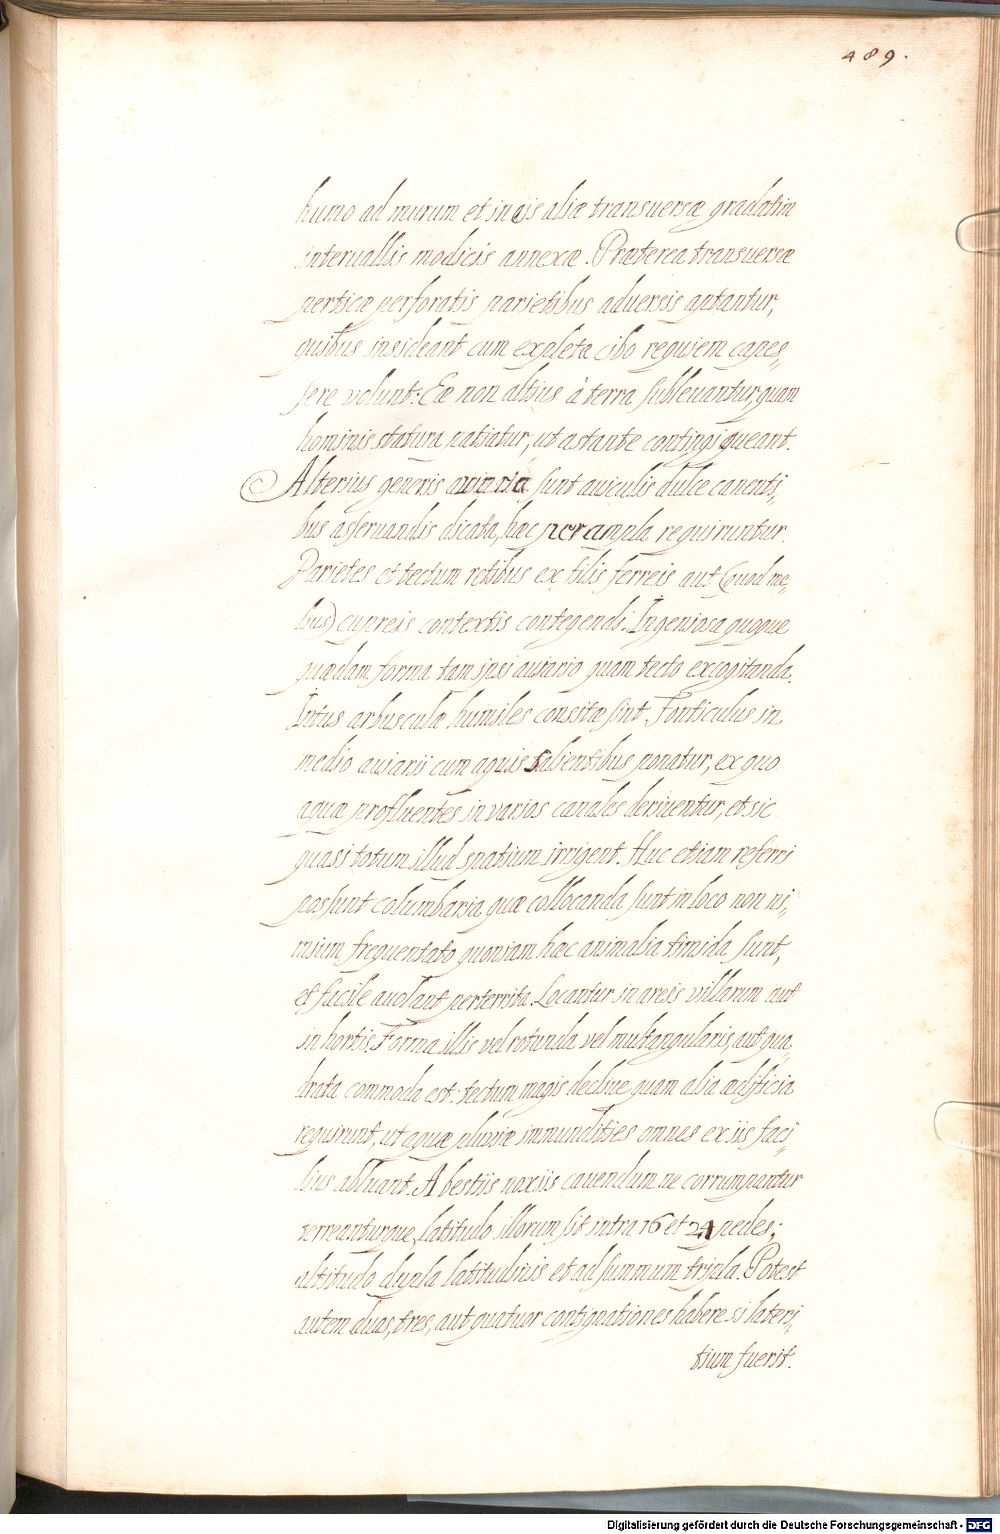 489.
humo ad murum et in ijs aliæ transuersæ gradatim
interuallis modicis annexæ. Præterea transuersæ
perticæ perforatis parietibus aduersis aptantur,
quibus insideant cum expleta cibo requiem capes„
sere volunt: Eæ non altius à terra subleuantur, quam
hominis statura patiatur, ut astante contingi queant.
Alterius generis auiaria sunt auiculis dulce canenti„
bus asseruandis dicata, hæc perampla requiruntur.
Parietes et tectum retibus ex filis ferreis aut (quod me„
lius) cupreis contextis contegendi. Ingeniosa quoque
quædam forma tam ipsi auiario quam tecto excogitanda.
Intus arbusculæ humiles consitæ sint, Fonticulus in
medio auiarii cum aquis salientibus ponatur, ex quo
aquæ profluentes in varios canales deriuentur, et sic
quasi totum illud spatium irrigent. Huc etiam referri
possunt columbaria quæ collocanda sunt in loco non ni„
mium frequentato quoniam hæc animalia timida sunt,
et facile auolant perterrita. Locantur in areis villarum aut
in hortis, Forma illis vel rotunda vel multangularis, aut qua„
drata commoda est: tectum magis decliue quam alia ædificia
requirunt, ut aquæ pluuiæ immundities omnes ex iis faci„
lius abluant. A bestiis noxiis cauendum ne corrumpantur
terreanturque, latitudo illorum sit intra 16 et 24 pedes;
altitudo dupla latitudinis et ad summum tripla. Potest
autem duas, tres, aut quatuor contignationes habere si lateri„
tium fuerit.
Digitalisierung gefördert durch die Deutsche Forschungsgemeinschaft - DFG